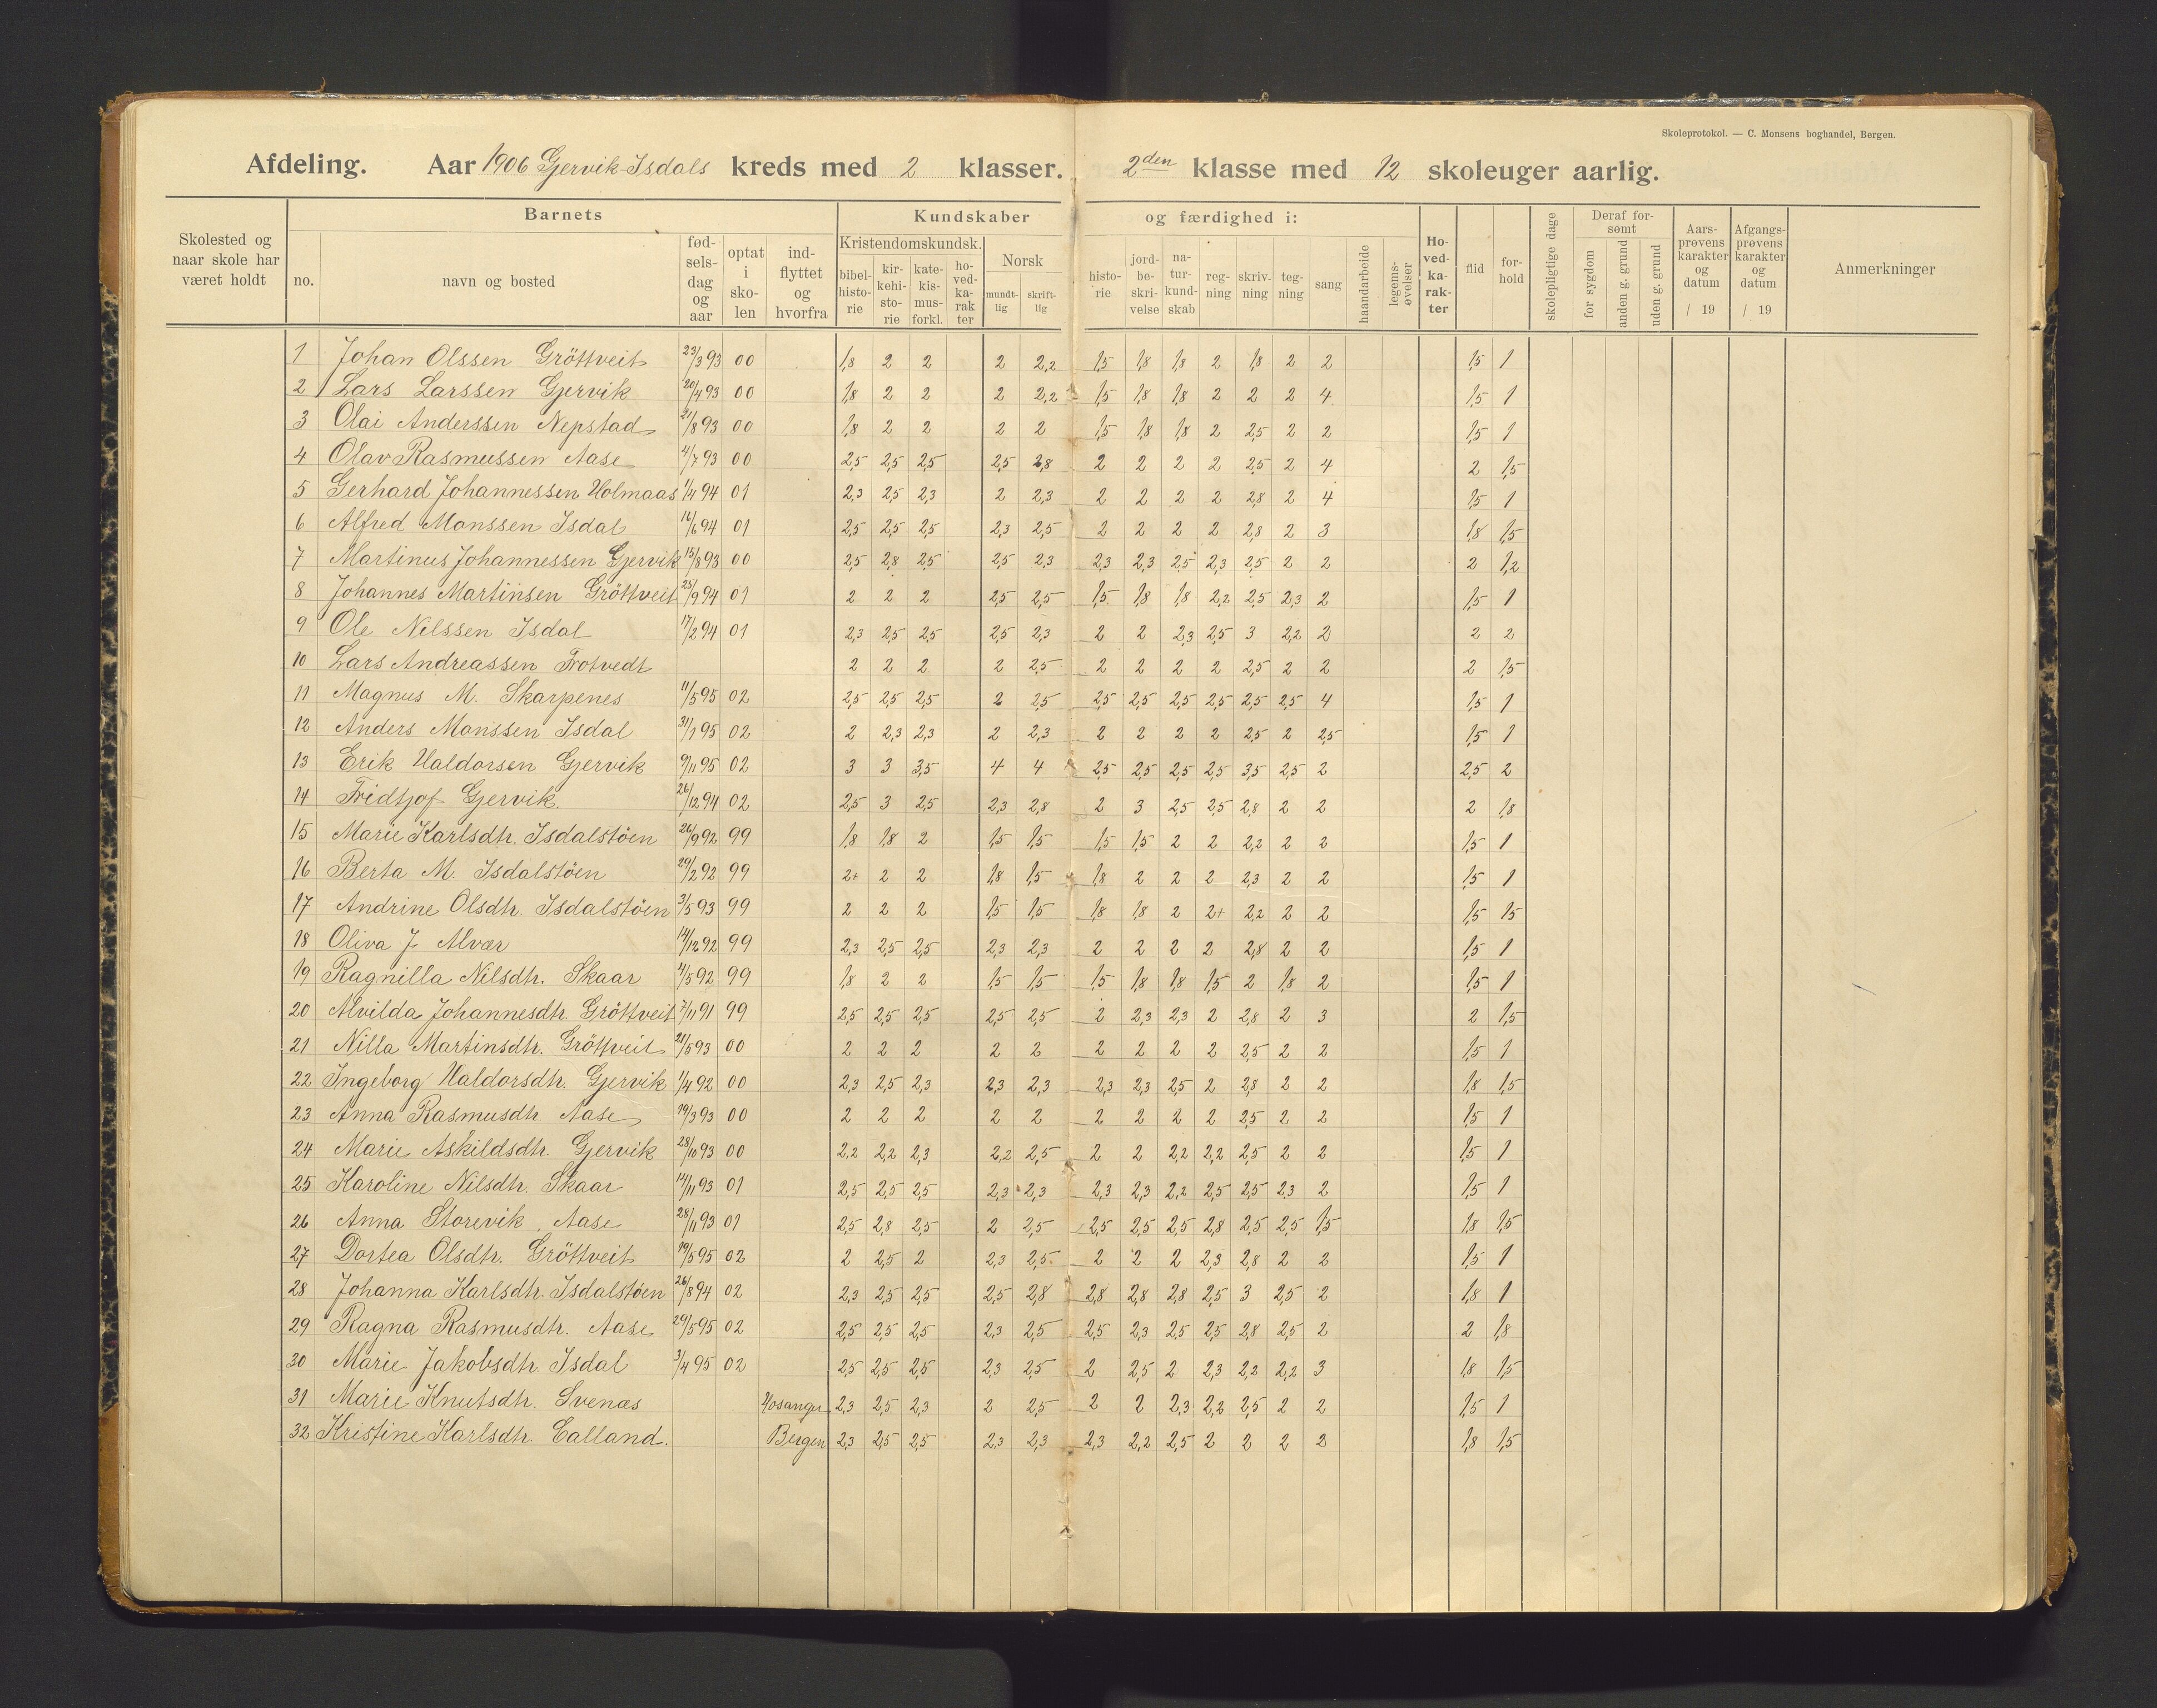 Skoleprotokol. — C. Monsens boghandel, Bergen.
Afdeling. Aar 1906 Gjervik-Isdals kreds med 2 klasser. 2den klasse med 12 skoleuger aarlig.
Skolested og naar skole har været holdt
Barnets
no. navn og bosted fødselsdag og aar optat i skolen indflyttet og hvorfra
Kundskaber og færdighed i:
Kristendomskundsk. bibelhistorie kirkehistorie katekismusforkl. hovedkarakter
Norsk mundtlig skriftlig
historie jordbeskrivelse naturkundskab regning skrivning tegning sang haandarbeide legemsøvelser
Hovedkarakter flid forhold skolepligtige dage
Deraf forsømt for sygdom anden g. grund uden g. grund
Aarsprøvens karakter og datum / 19
Afgangsprøvens karakter og datum / 19
Anmerkninger
1 Johan Olssen Gröttveit 23/3 93 00 1,8 2 2 2 2,2 1,5 1,8 1,8 2 1,8 2 2 1,5 1
2 Lars Larssen Gjervik 20/4 93 00 1,8 2 2 2 2,2 1,5 1,8 1,8 2 2 2 4 1,5 1
3 Olai Anderssen Nepstad 21/8 93 00 1,8 2 2 2 2 1,5 1,8 1,8 2 2,5 2 2 1,5 1
4 Olav Rasmussen Aase 4/7 93 00 2,5 2,5 2,5 2,5 2,8 2 2 2 2 2,5 2 4 2 1,5
5 Gerhard Johannessen Holmaas 1/4 94 01 2,3 2,5 2,3 2 2,3 2 2 2 2 2,8 2 4 1,5 1
6 Alfred Monssen Isdal 16/6 94 01 2,5 2,5 2,5 2,3 2,5 2 2 2 2 2,8 2 3 1,8 1,5
7 Martinus Johannessen Gjervik 15/8 93 00 2,5 2,8 2,5 2,5 2,3 2,3 2,3 2,5 2,3 2,5 2 2 2 1,2
8 Johannes Martinsen Gröttveit 23/9 94 01 2 2 2 2,5 2,5 1,5 1,8 1,8 2,2 2,5 2,3 2 1,5 1
9 Ole Nilssen Isdal 17/2 94 01 2,3 2,5 2,5 2,5 2,3 2 2 2,3 2,5 3 2,2 2 2 2
10 Lars Andreassen Frotvedt 2 2 2 2 2,5 2 2 2 2 2,5 2 2 2 1,5
11 Magnus M. Skarpenes 11/5 95 02 2,5 2,5 2,5 2 2,5 2,5 2,5 2,5 2,5 2,5 2,5 4 1,5 1
12 Anders Monssen Isdal 31/1 95 02 2 2,3 2,3 2 2,3 2 2 2 2 2,5 2 2,5 1,5 1
13 Erik Haldorsen Gjervik 9/11 95 02 3 3 3,5 4 4 2,5 2,5 2,5 2,5 3,5 2,5 2 2,5 2
14 Fridtjof Gjervik. 26/12 94 02 2,5 3 2,5 2,3 2,8 2 3 2,5 2,5 2,8 2 2 2 1,8
15 Marie Karlsdtr. Isdalstöen 26/9 92 99 1,8 1,8 2 1,5 1,5 1,5 1,5 2 2 2,2 2 2 1,5 1
16 Berta M. Isdalstöen 29/2 92 99 2+ 2 2 1,8 1,5 1,8 2 2 2 2,3 2 2 1,5 1
17 Andrine Olsdtr. Isdalstöen 3/5 93 99 2 2 2 1,5 1,5 1,8 1,8 2 2+ 2,2 2 2 1,5 1,5
18 Oliva J. Alvær 14/12 92 99 2,3 2,5 2,5 2,3 2,3 2 2 2 2 2,8 2 2 1,5 1
19 Ragnilla Nilsdtr. Skaar 4/5 92 99 1,8 2 2 1,5 1,5 1,5 1,8 1,8 1,5 2 1,8 2 1,5 1
20 Alvilda Johannesdtr. Gröttveit 7/11 91 99 2,5 2,5 2,5 2,5 2,5 2 2,3 2,3 2 2,8 2 3 2 1,5
21 Nilla Martinsdtr. Gröttveit 21/5 93 00 2 2 2 2 2 2 2 2 2 2,5 2 2 1,5 1
22 Ingeborg Haldorsdtr. Gjervik 1/4 92 00 2,3 2,5 2,3 2,3 2,3 2,3 2,3 2,5 2 2,8 2 2 1,8 1,5
23 Anna Rasmusdtr. Aase 19/3 93 00 2 2 2 2 2 2 2 2 2 2,5 2 2 1,5 1
24 Marie Askildsdtr. Gjervik 28/10 93 00 2,2 2,2 2,3 2,2 2,5 2 2 2,2 2,2 2,5 2 2 1,5 1
25 Karoline Nilsdtr. Skaar 14/11 93 01 2,5 2,5 2,5 2,3 2,3 2,3 2,3 2,2 2,5 2,5 2,3 2 1,5 1
26 Anna Storevik, Aase 28/11 93 01 2,5 2,8 2,5 2 2,5 2,5 2,5 2,5 2,8 2,5 2,5 1,5 1,8 1,5
27 Dortea Olsdtr. Gröttveit 19/5 95 02 2 2,5 2 2,3 2,5 2 2 2 2,3 2,8 2 2 1,5 1
28 Johanna Karlsdtr. Isdalstöen 26/8 94 02 2,3 2,5 2,5 2,5 2,8 2,8 2,8 2,8 2,5 3 2,5 2 1,8 1
29 Ragna Rasmusdtr. Aase 29/5 95 02 2,5 2,5 2,5 2,3 2,5 2,5 2,3 2,5 2,5 2,8 2,5 2 2 1,8
30 Marie Jakobsdtr. Isdal 3/4 95 02 2,5 2,5 2,5 2,3 2,5 2 2,5 2 2,3 2,2 2,2 3 1,8 1,5
31 Marie Knutsdtr. Svenæs Hosanger 2,3 2,5 2,3 2 2,5 2 2 2,3 2,2 2,5 2 2 1,5 1
32 Kristine Karlsdtr. Calland. Bergen 2,3 2,5 2,5 2,3 2,3 2,3 2,2 2,5 2 2 2 2 1,8 1,5